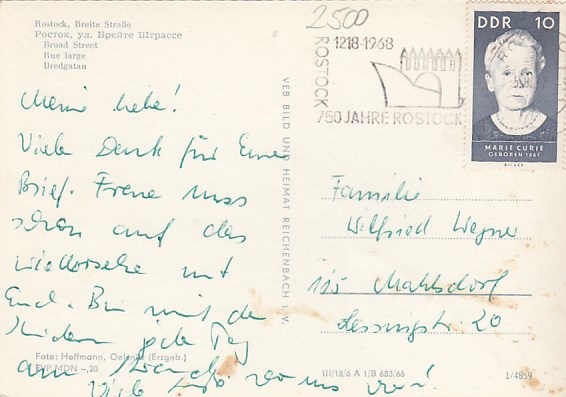 Rostock, Breite Straße
Росток, ул. Брейте Штрассе
Broad Street
Rue large
Bredgatan
2500
ROSTOCK
1218-1968
750 JAHRE ROSTOCK
DDR 10
MARIE CURIE
GEBOREN 1867
Meine liebe!
Viele Dank für Eure
Brief. Freue uns
schon auf das
Wiedersehn mit
Euch. Bin mit de
Kindern jede Tag
am Strand.
Viele
von uns
VEB BILD UND HEIMAT REICHENBACH i. V.
Familie
Wilfried Wegner
115 Mahlsdorf
Lessingstr. 20
Foto: Hoffmann, Oelsnitz (Erzgeb.)
EVP MDN -,20
III/18/6 A 1/B 683/66
1/4859